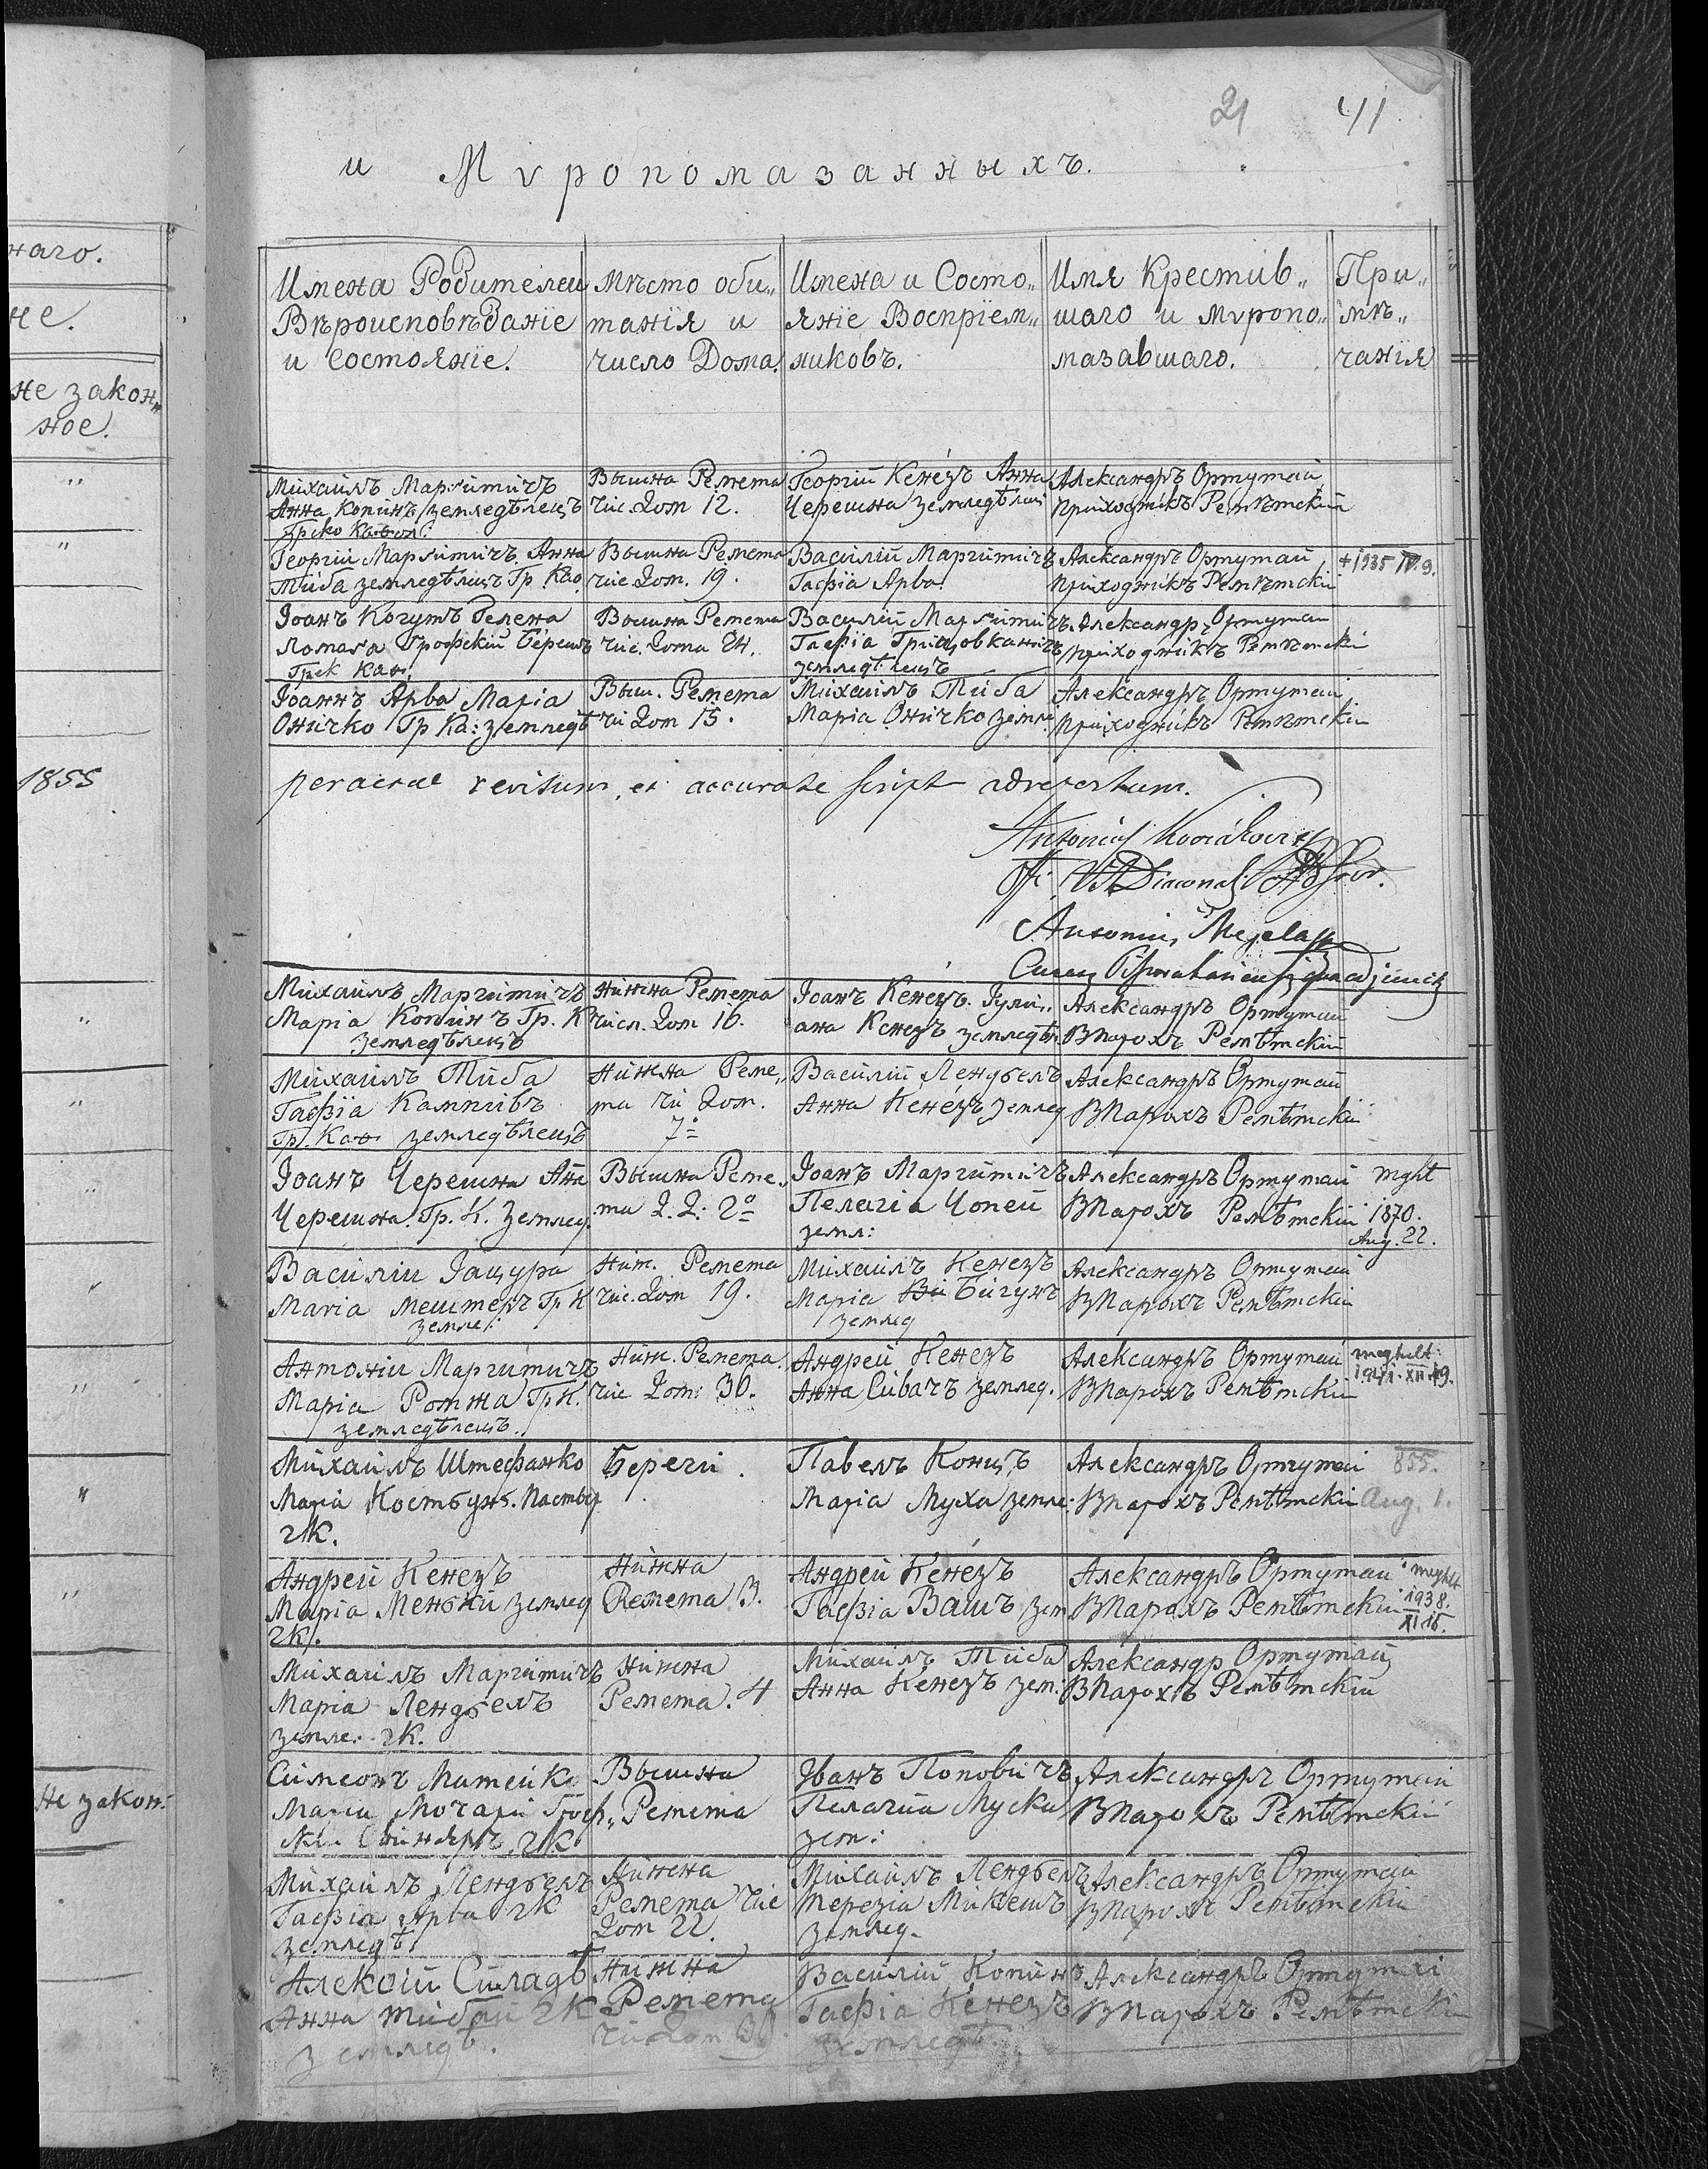 наго.
не.
не закон„
ное.
1855
Не закон:
21 41
и Мѵропомазанныхъ.
Имена Родителей
Вѣроисповѣданіе
и Состояніе.
Мѣсто оби„
танія и
число Дома.
Имена и Состо„
яніе Воспріем„
никовъ.
Имя Крестив„
шаго и мѵропо„
мазавшаго.
При„
мѣ„
чанія
Михаилъ Маргитичъ
Анна Копинъ земледѣлецъ
Греко Кафол:
Вышна Ремета
чис. Дом 12.
Георгій Кенезъ Анна
Черешна земледѣлці
Александръ Ортутай
приходникъ Реметскій
Георгій Маргитичъ Анна
Тиба земледѣлецъ Гр. Каѳ.
Вышна Ремета
чис. Дом. 19.
Василій Маргитичъ
Гафія Арва
Александръ Ортутай
приходникъ Реметскій
+1935 IV. 9.
Іоанъ Когутъ Гелена
Ломага Грофскій берешъ
Грек Каѳ.
Вышна Ремета
чис. Дома 24.
Василій Маргитичъ
Гафія
земледѣлецъ
Александръ Ортутай
приходникъ Реметскій
Іоаннъ Арва Марія
Оничко Гр Ка: земледѣ
Выш. Ремета
чи Дом 15.
Михаилъ Тиба
Марія Оничко земле
Александръ Ортутай
приходникъ Реметскій
peractae revisum, et accurate script adrepertum.
Antonius
Михаилъ Маргитичъ
Марія Копинъ Гр. К
земледѣлецъ
Нижна Ремета
числ. Дом 16.
Іоанъ Кенезъ. Іули„
ана Кенезъ земледѣ.
Александръ Ортутай
ВПарохъ Реметскій
Михаилъ Тиба
Гафія Кампивъ
Гр. Каѳ земледѣлецъ
Нижна Реме„
та чи Дом.
7.
Василій Лендьелъ
Анна Кенезъ землед
Александръ Ортутай
ВПарохъ Реметскій
Іоанъ Черешна Анна
Черешна. Гр. К. Землед.
Вышна Реме„
та Д. Д: 2
Іоанъ Маргитичъ
Пелагіа Чопей
земл:
Александръ Ортутай
ВПарохъ Реметскій
mght
1870.
Aug. 22.
Василій Іацура
Маріа Мештеръ Гр К
земле:
Ниж. Ремета
чис. Дом 19.
Михаилъ Кенезъ
Маріа Ви Бигунъ
землед
Александръ Ортутай
ВПарохъ Реметскій
Антоній Маргитичъ
Маріа Ромжа Гр К.
земледѣлецъ.
Ниж. Ремета.
чис Дом: 30.
Андрей Кенезъ
Анна Сивачъ землед.
Александръ Ортутай
ВПарохъ Реметскій
meghalt:
1941. XII.19.
Михаилъ Штефанко
Маріа Костбунъ. Пастыр
гК.
Береги.
Павелъ Концъ
Маріа Муха земле:
Александръ Ортутай
ВПарохъ Реметскій
855.
Aug. 1.
Андрей Кенезъ
Маріа Менькій землед
гК.
Нижна
Ремета 3.
Андрей Кенезъ
Гафіа Вашъ зем
Александръ Ортутай
ВПарохъ Реметскій
meghlt
1938.
XI 15.
Михаилъ Маргитичъ
Маріа Лендьелъ
земле: гК.
Нижна
Ремета. 4
Михаилъ Тиба
Анна Кенезъ зем:
Александр Ортутай
ВПарохъ Реметскій
Симеонъ Матейко
Маріа Мочарій Гроф„
гК.
Вышна
Ремета
Іванъ Поповичъ
Пелагиа Муска
зем:
Александръ Ортутай
ВПарохъ Реметскій
Михаилъ Лендьелъ
Гафіа Арва гК
земледѣ.
Нижна
Ремета чис
Дом 22.
Михаилъ Лендьелъ
Терезіа Микешъ
землед.
Александръ Ортутай
ВПарохъ Реметскій
Алексій Силадъ
Анна гК
земледѣ.
Нижна
Ремета
чи Дом 30.
Василій Копинъ
Гафіа Кенезъ
земледѣ.
Александръ Ортутай
ВПарохъ Реметскій